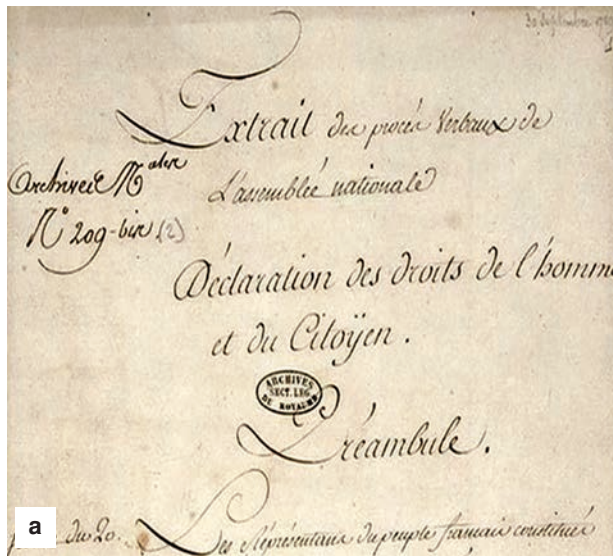 30 Septembre
Extrait des procès Verbaux de
L'assemblée nationale
Archives N^ales
N° 209-bis (2)
Déclaration des droits de l'homm
et du Citoÿen.
ARCHIVES
SECT. LEG
DU ROYAUME
Préambule.
du 20. Les Représentans du peuple francais constitués
a